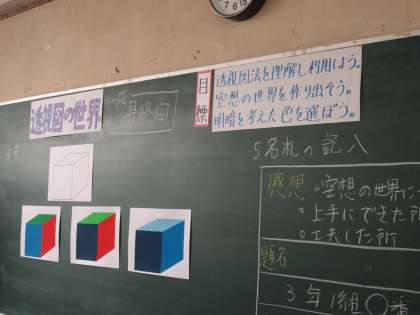 7 6 5
透視図の世界
最終回
目標
透視図法を理解し利用しよう。
空想の世界を作り出そう。
明暗を考えた色を選ぼう。
5名札の記入
感想
○空想の世界に
○上手にできた所
○工夫した所
題名
3年1組○番